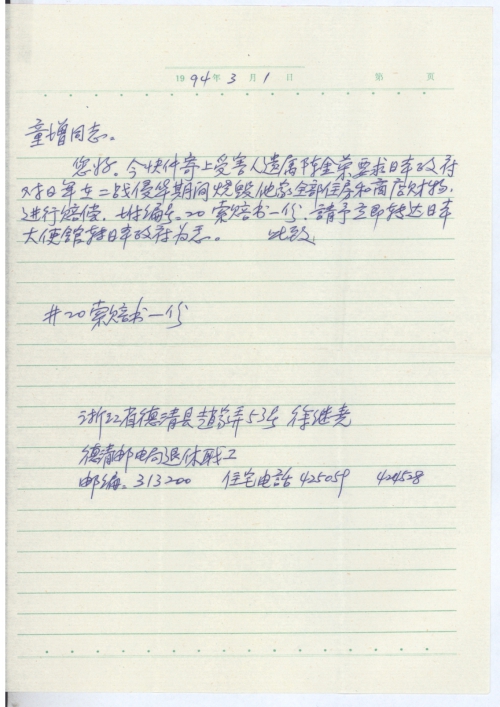 1994年3月1日 第 页
童增同志。
您好。今快件寄上受害人遗属陈金荣要求日本政府
对日军在二战侵华期间烧毁他家全部住房和商店财物,
进行赔偿, 编号。20索赔书一份, 請予立即转达日本
大使館转日本政府为志。 此致
井20索赔书一份
浙江省德清县 弄53号 徐继尧
德清邮电局退休职工
邮编。313200 住宅电話 425059 424528